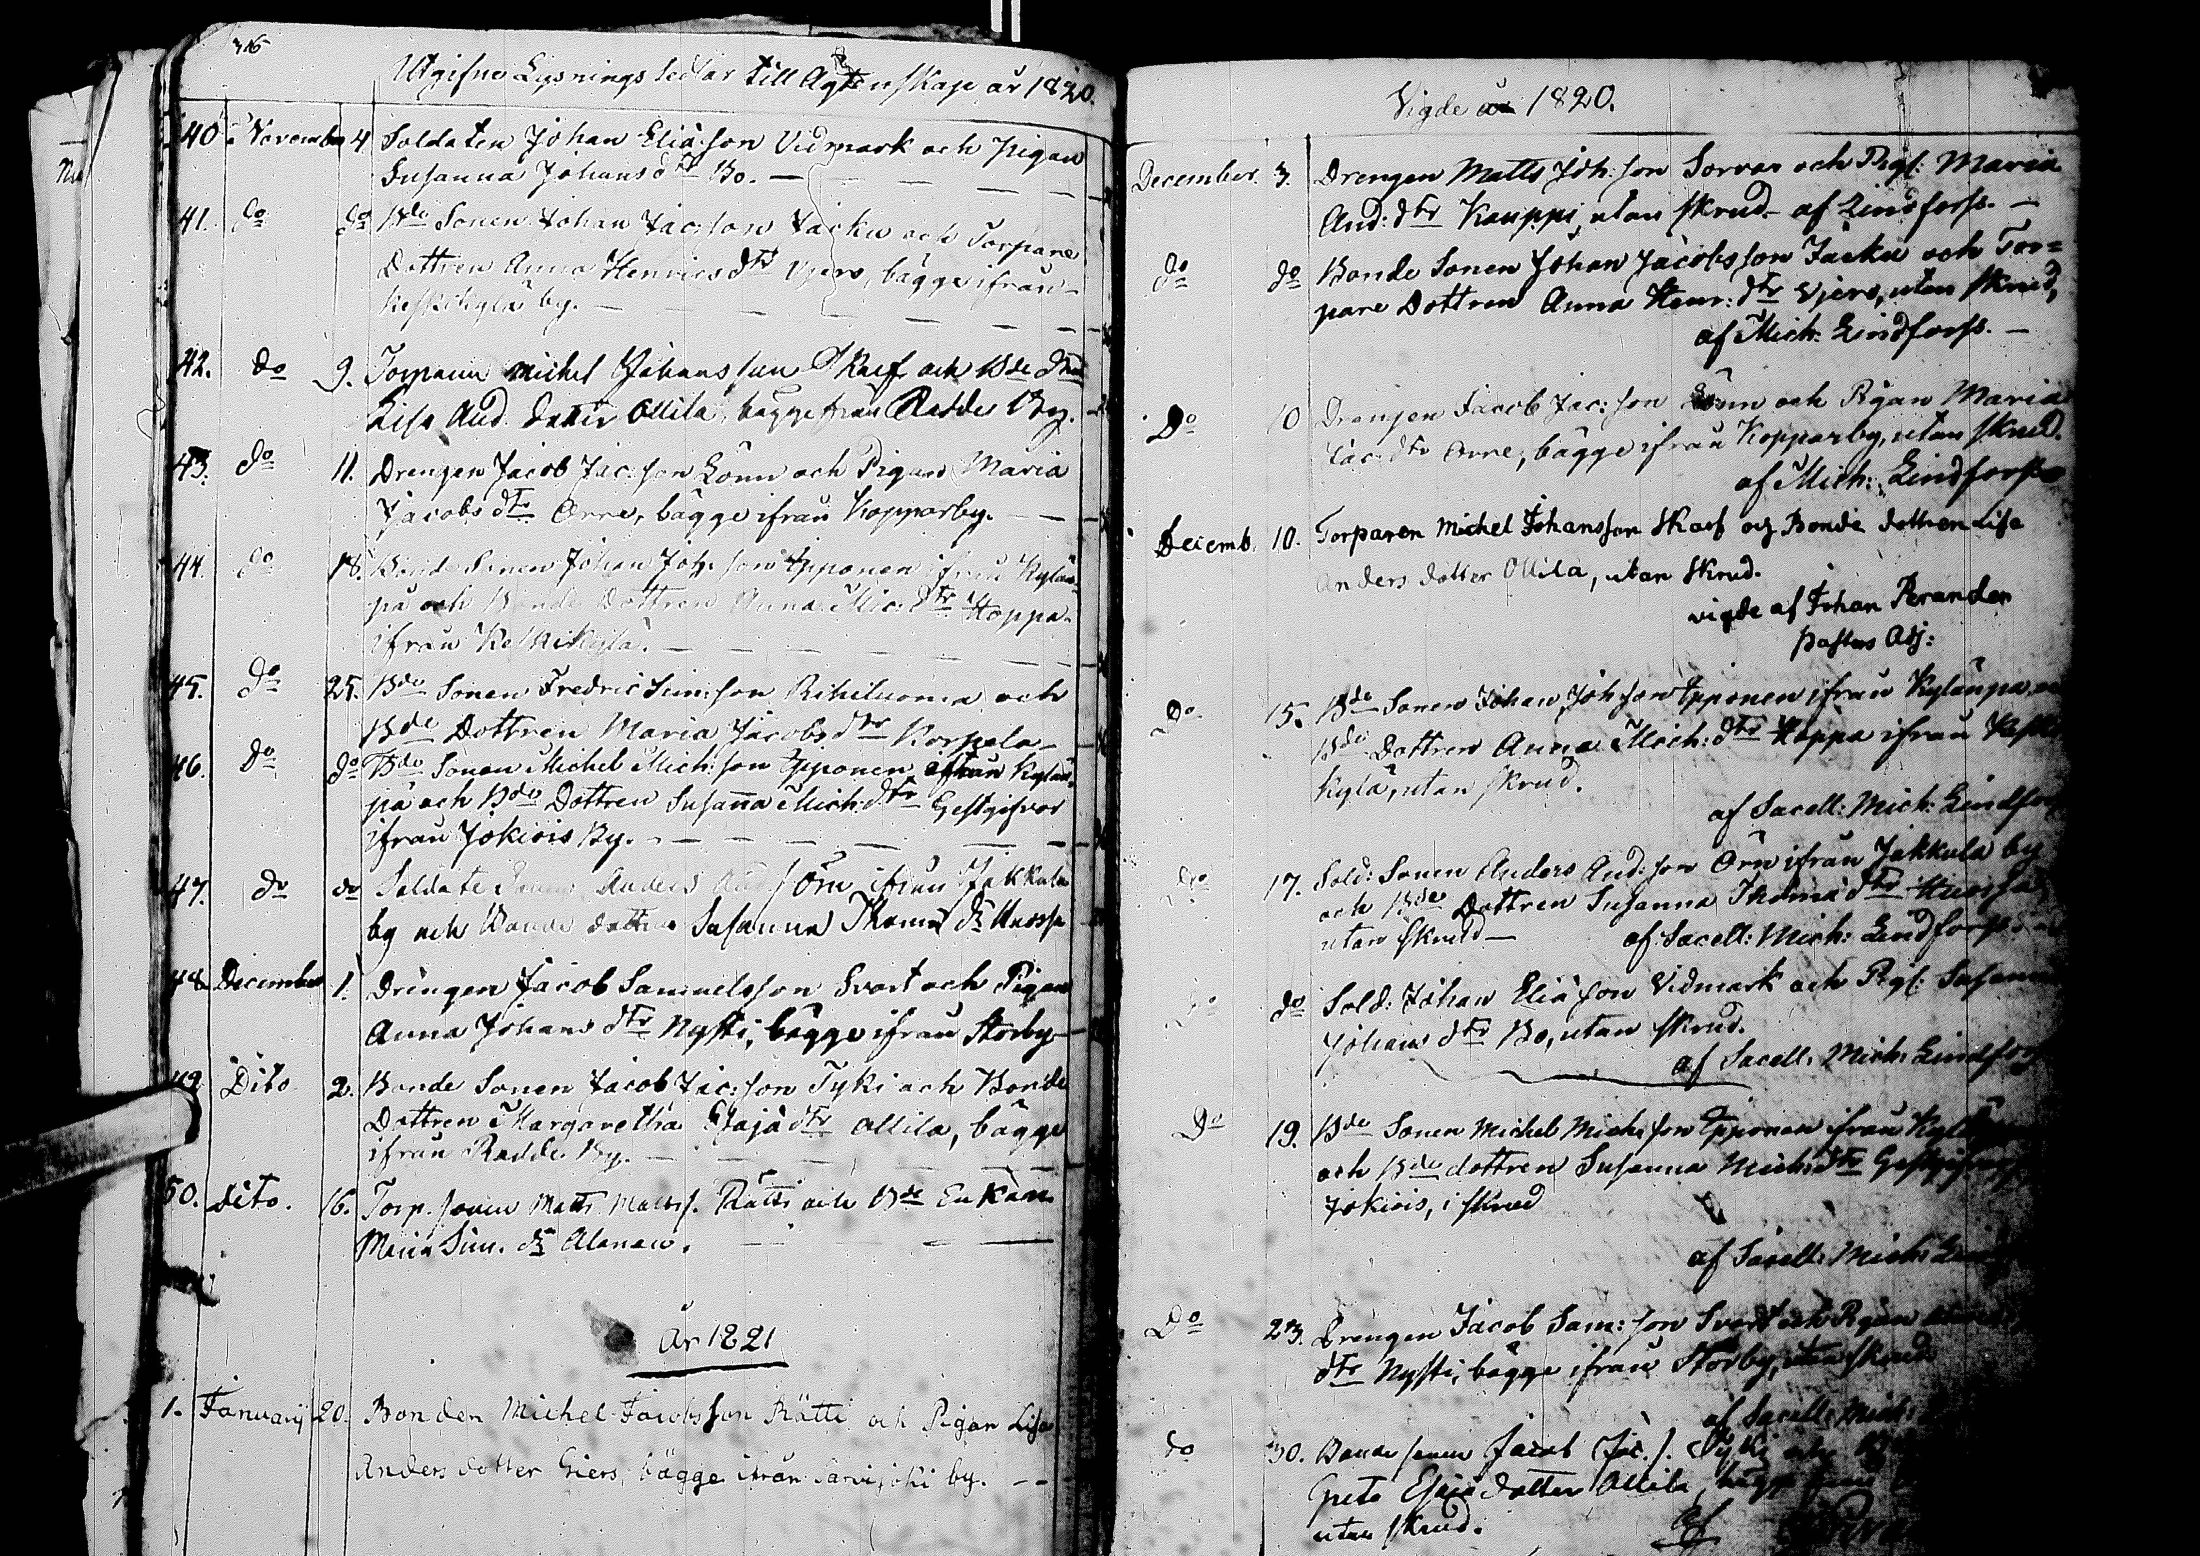 316
Utgifne Lysnings Sedlar till Agtenskap år 1820.
40 November 4 Soldaten Johan Eliæson Vidmark och Pigan
Susanna Johans dtr Bo. —
41. do do Bde Sonen Johan Jac: son Jacku och Torpare
Dottren Anna Henrics dtr Vjers, bägge ifrån
Keskikylä by. —
42. do 9. Torparen Michel Johansson Skarf och Bde
Lisa And. dotter Ollila, bägge från Radde By.
43. do 11. Drengen Jacob Jac: son Lönn och Pigan Maria
Jacobs dtr Orre, bägge ifrån Kopparby. —
44. do 18. Bonde Sonen Johan Joh: son Epponen ifrån Kylän-
pä och Bonde Dottren Anna Mic: dtr Hoppa
ifrån Keskikylä. —
45. do 25. Bde Sonen Fredric Sim: son Rihiluoma och
Bde Dottren Maria Jacobs dtr Korpela —
46. do do Bde Sonen Michel Mich: son Epponen ifrån Kylän-
pä och Bde Dottren Susanna Mich: dtr Gestgifvar
ifrån Jokiois By. —
47. do do Soldate Sonen Anders And s. Örn ifrån Jakkula
by och Bonde dottren Susanna Thomæ dr Huossa
48. December 1. Drengen Jacob Samuelsson Svart och Pigan
Anna Johans dtr Nysti, bägge ifrån Storby —
49. Dito 2. Bonde Sonen Jacob Jac: son Tyki och Bonde
Dottren Margaretha Esajæ dtr Ollila, bägge
ifrån Radde By. —
50. dito. 16. Torp. sonen Matts Mattss. Rätti och Bde Enkan
Maria Sim. dr Alanen. —
År 1821
1. Januarij 20. Bonden Michel Jacobsson Rätti och Pigan Lisa
Anders dotter Griers, bägge ifrån Sarvijoki by. —
Vigde år 1820.
December. 3. Drengen Matts Joh: son Sorvar och Pigs: Maria
And: dtr Kauppi, utan skrud — af Lindforss. —
do do Bonde Sonen Johan Jacobsson Jacku och Tor=
pare Dottren Anna Henr: dtr Vjers, utan skrud,
af Mich: Lindforss. —
Do 10 Drengen Jacob Jac: son Lönn och Pigan Maria
Jac: dtr Orre, bägge ifrån Kopparby, utan skrud.
af Mich: Lindforss
Decemb. 10. Torparen Michel Johansson Skarf och Bonde dottren Lisa
Anders dotter Ollila, utan skrud.
vigde af Johan Peranden
Pastors Adj:
Do 15. Bde Sonen Johan Joh: son Epponen ifrån Kylänpä
Bde Dottren Anna Mich: dtr Hoppa ifrån Keski
kylä, utan skrud.
af Sacell: Mich: Lindfor
do 17. Sold: Sonen Anders And: son Örn ifrån Jakkula by
och Bde Dottren Susanna Thomæ dtr Huossa
utan skrud — af Sacell: Mich: Lindforss
do Sold: Johan Eliæ son Vidmark och Pigs: Susanna
Johans dtr Bo, utan skrud.
af Sacell: Mich: Lindfor
Do 19. Bde Sonen Michel Mich: son Epponen ifrån Kylän
och Bde dottren Susanna Mich: dtr Gestgifvar
Jokiois, i skrud
af Sacell: Mich:
Do 23. Drengen Jacob Sam: son Svart och Pigan
dtr Nysti, bägge ifrån Storby, utan skrud
af Sacell: Mich:
do 30. Bonde sonen Jacob Jac. s. Tyki och
Greta Esaiæ dotter Ollila, bägge från
utan skrud.
af